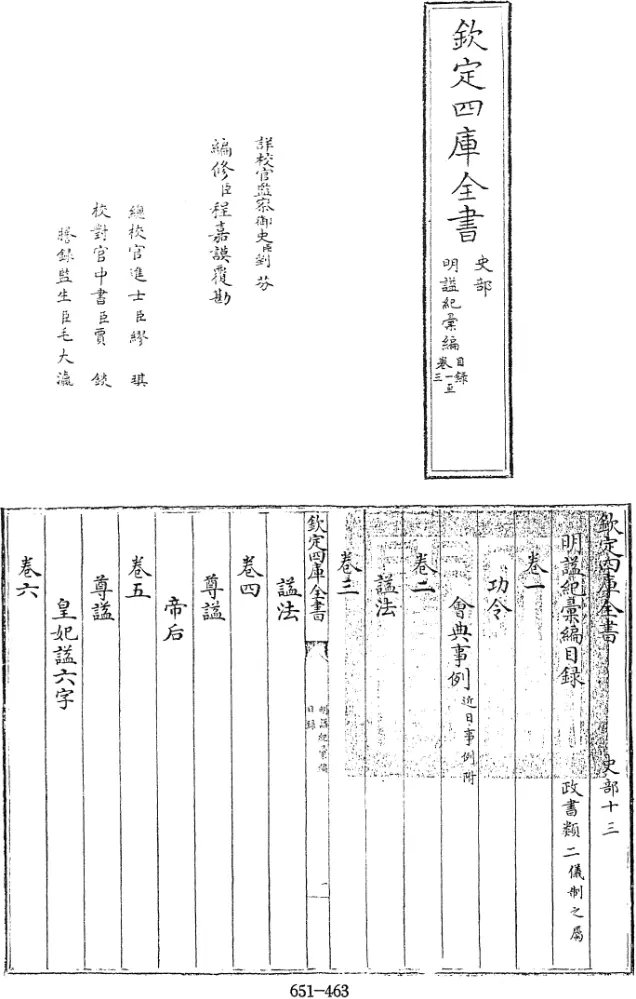 欽定四庫全書
史部
明諡紀彙編
目錄
卷一至
三
詳校官監察御史臣劉芬
編修臣程嘉謨覆勘
總校官進士臣繆琪
校對官中書臣賈鋑
謄錄監生臣毛大瀛
欽定四庫全書 史部十三
明諡紀彙編目錄 政書類二儀制之屬
卷一
功令
會典事例近日事例附
卷二
諡法
卷三
欽定四庫全書
明諡紀彙編
目錄
一
諡法
卷四
尊諡
帝后
卷五
尊諡
皇妃諡六字
卷六
651-463